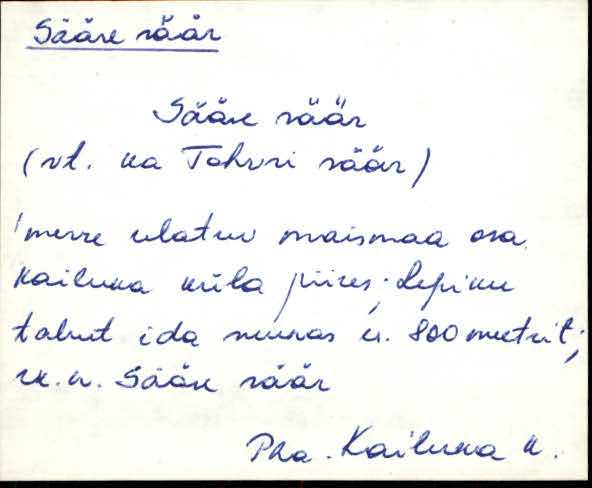 Sääre säär
Sääre säär
(vt. ka Tahvri säär)
merre ulatuv maismaa osa
Kailuka küla piires; Lepiku
talust ida suunas u. 800 meetrit;
rk. n. Sääre säär
Pha. Kailuka k.